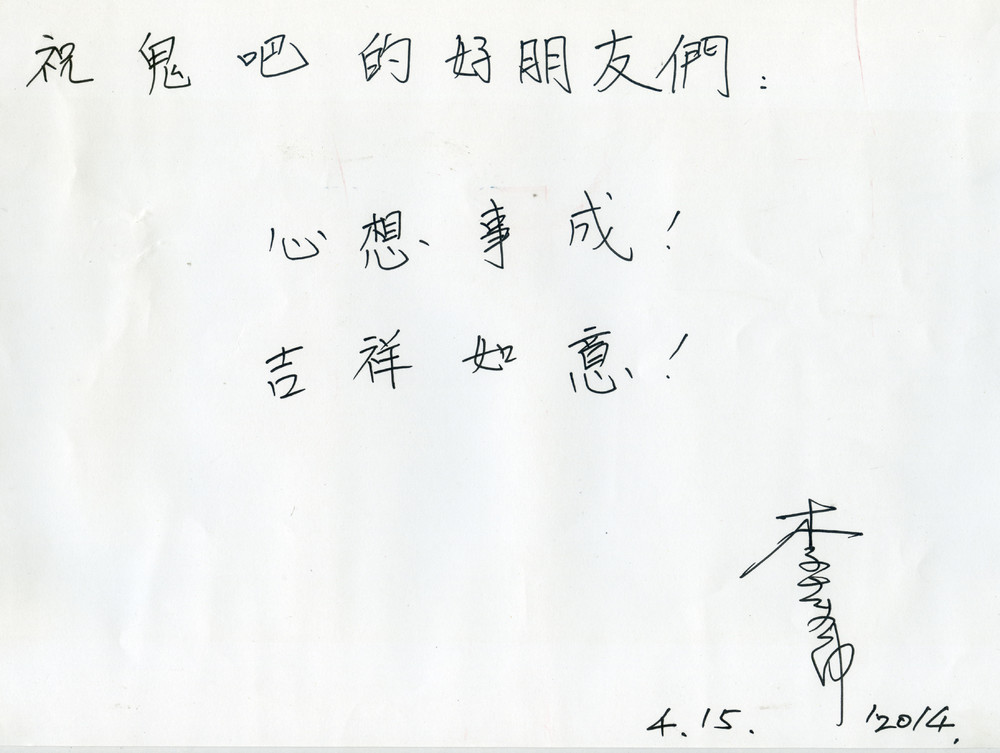 祝鬼吧的好朋友們:
心想事成!
吉祥如意!
李
4.15. 2014.